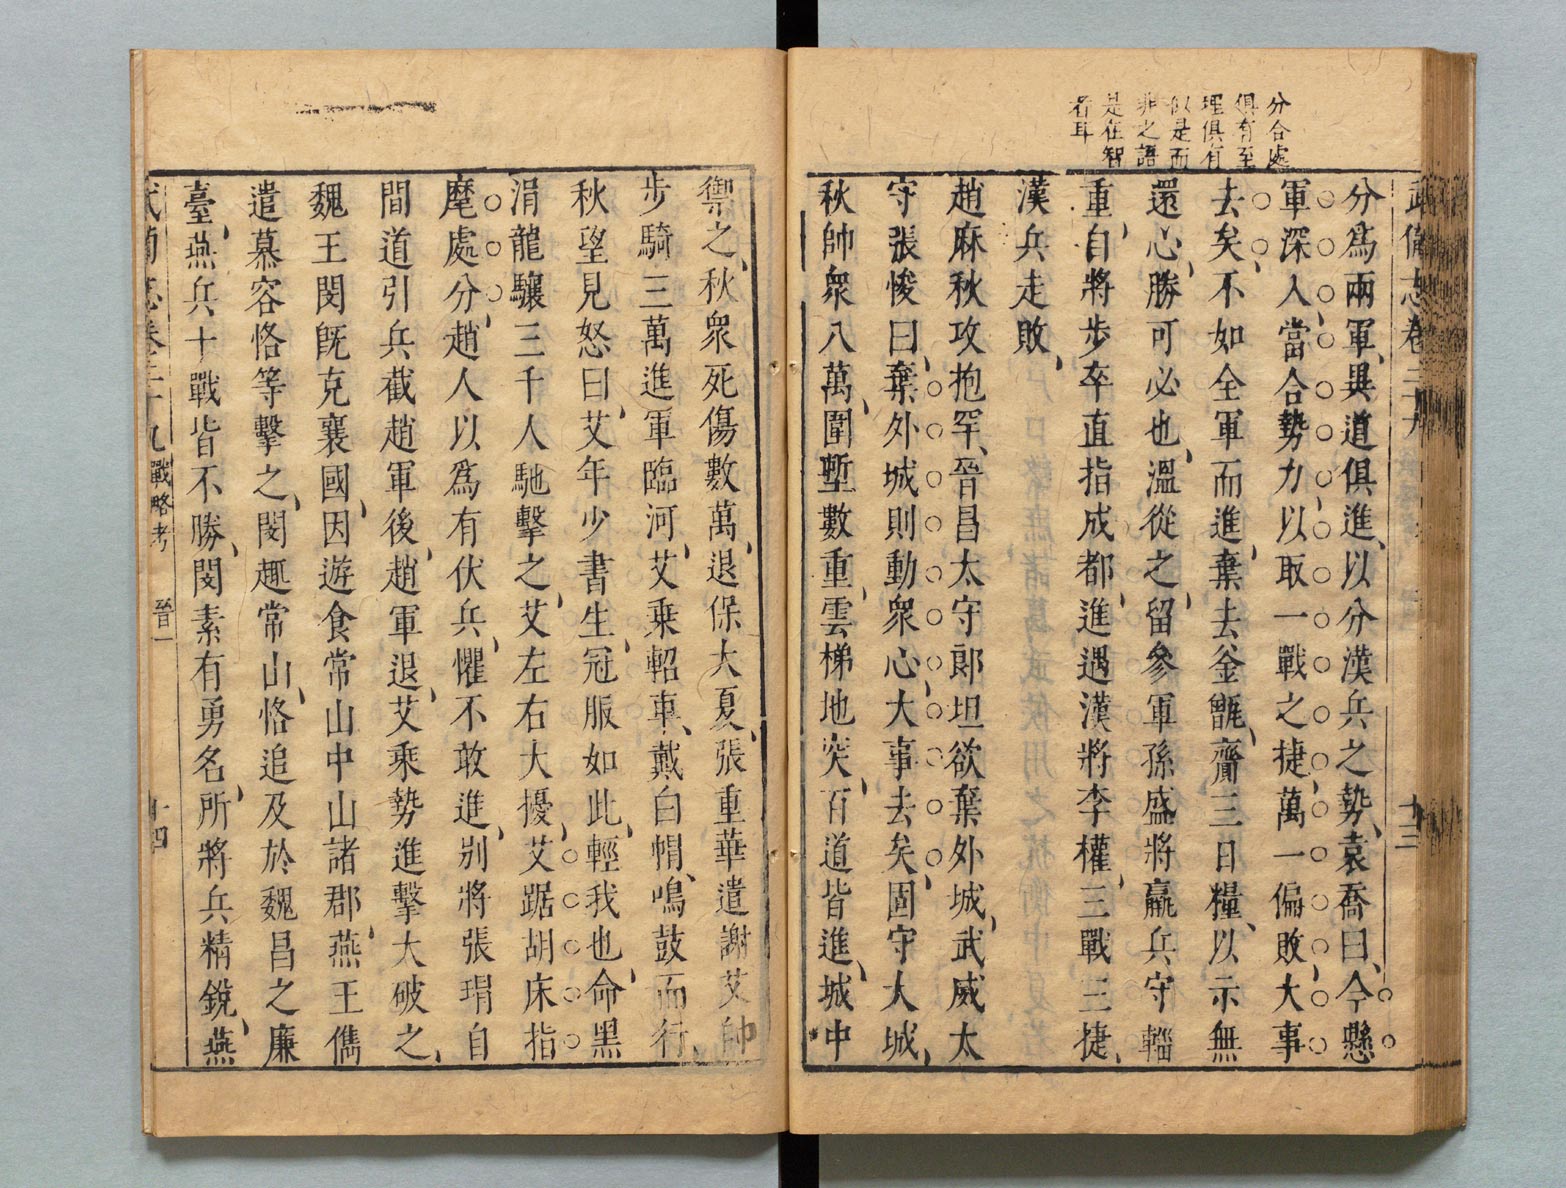 分合處
俱有至
理俱有
似是而
非之語
是在智
者耳
武備志卷二十九
十三
分爲兩軍、異道俱進、以分漢兵之勢、袁喬曰、今懸
軍深入、當合勢力、以取一戰之捷、萬一偏敗、大事
去矣、不如全軍而進、棄去釜甑、齎三日糧、以示無
還心、勝可必也、溫從之、留參軍孫盛將羸兵守輜
重、自將步卒直指成都、進遇漢將李權、三戰三捷、
漢兵走敗、
趙麻秋攻抱罕、晉昌太守郞坦欲棄外城、武威太
守張悛曰、棄外城則動衆心、大事去矣、固守大城、
秋帥衆八萬、圍塹數重、雲梯地突、百道皆進、城中
禦之、秋衆死傷數萬、退保大夏、張重華遣謝艾帥
步騎三萬進軍臨河、艾乗軺車、戴白㡌、鳴鼓而行、
秋望見怒曰、艾年少書生、冠服如此、輕我也、命黑
涓龍驤三千人馳擊之、艾左右大擾、艾踞胡床指
麾處分、趙人以爲有伏兵、懼不敢進、別將張瑁自
間道引兵截趙軍後、趙軍退、艾乘勢進擊大破之、
魏王閔旣克襄國、因遊食常山中山諸郡、燕王儁
遣慕容恪等擊之、閔趣常山、恪追及於魏昌之廉
臺、燕兵十戰皆不勝、閔素有勇名、所將兵精銳、燕
武備志卷二十九 戰略考 晉一
十四